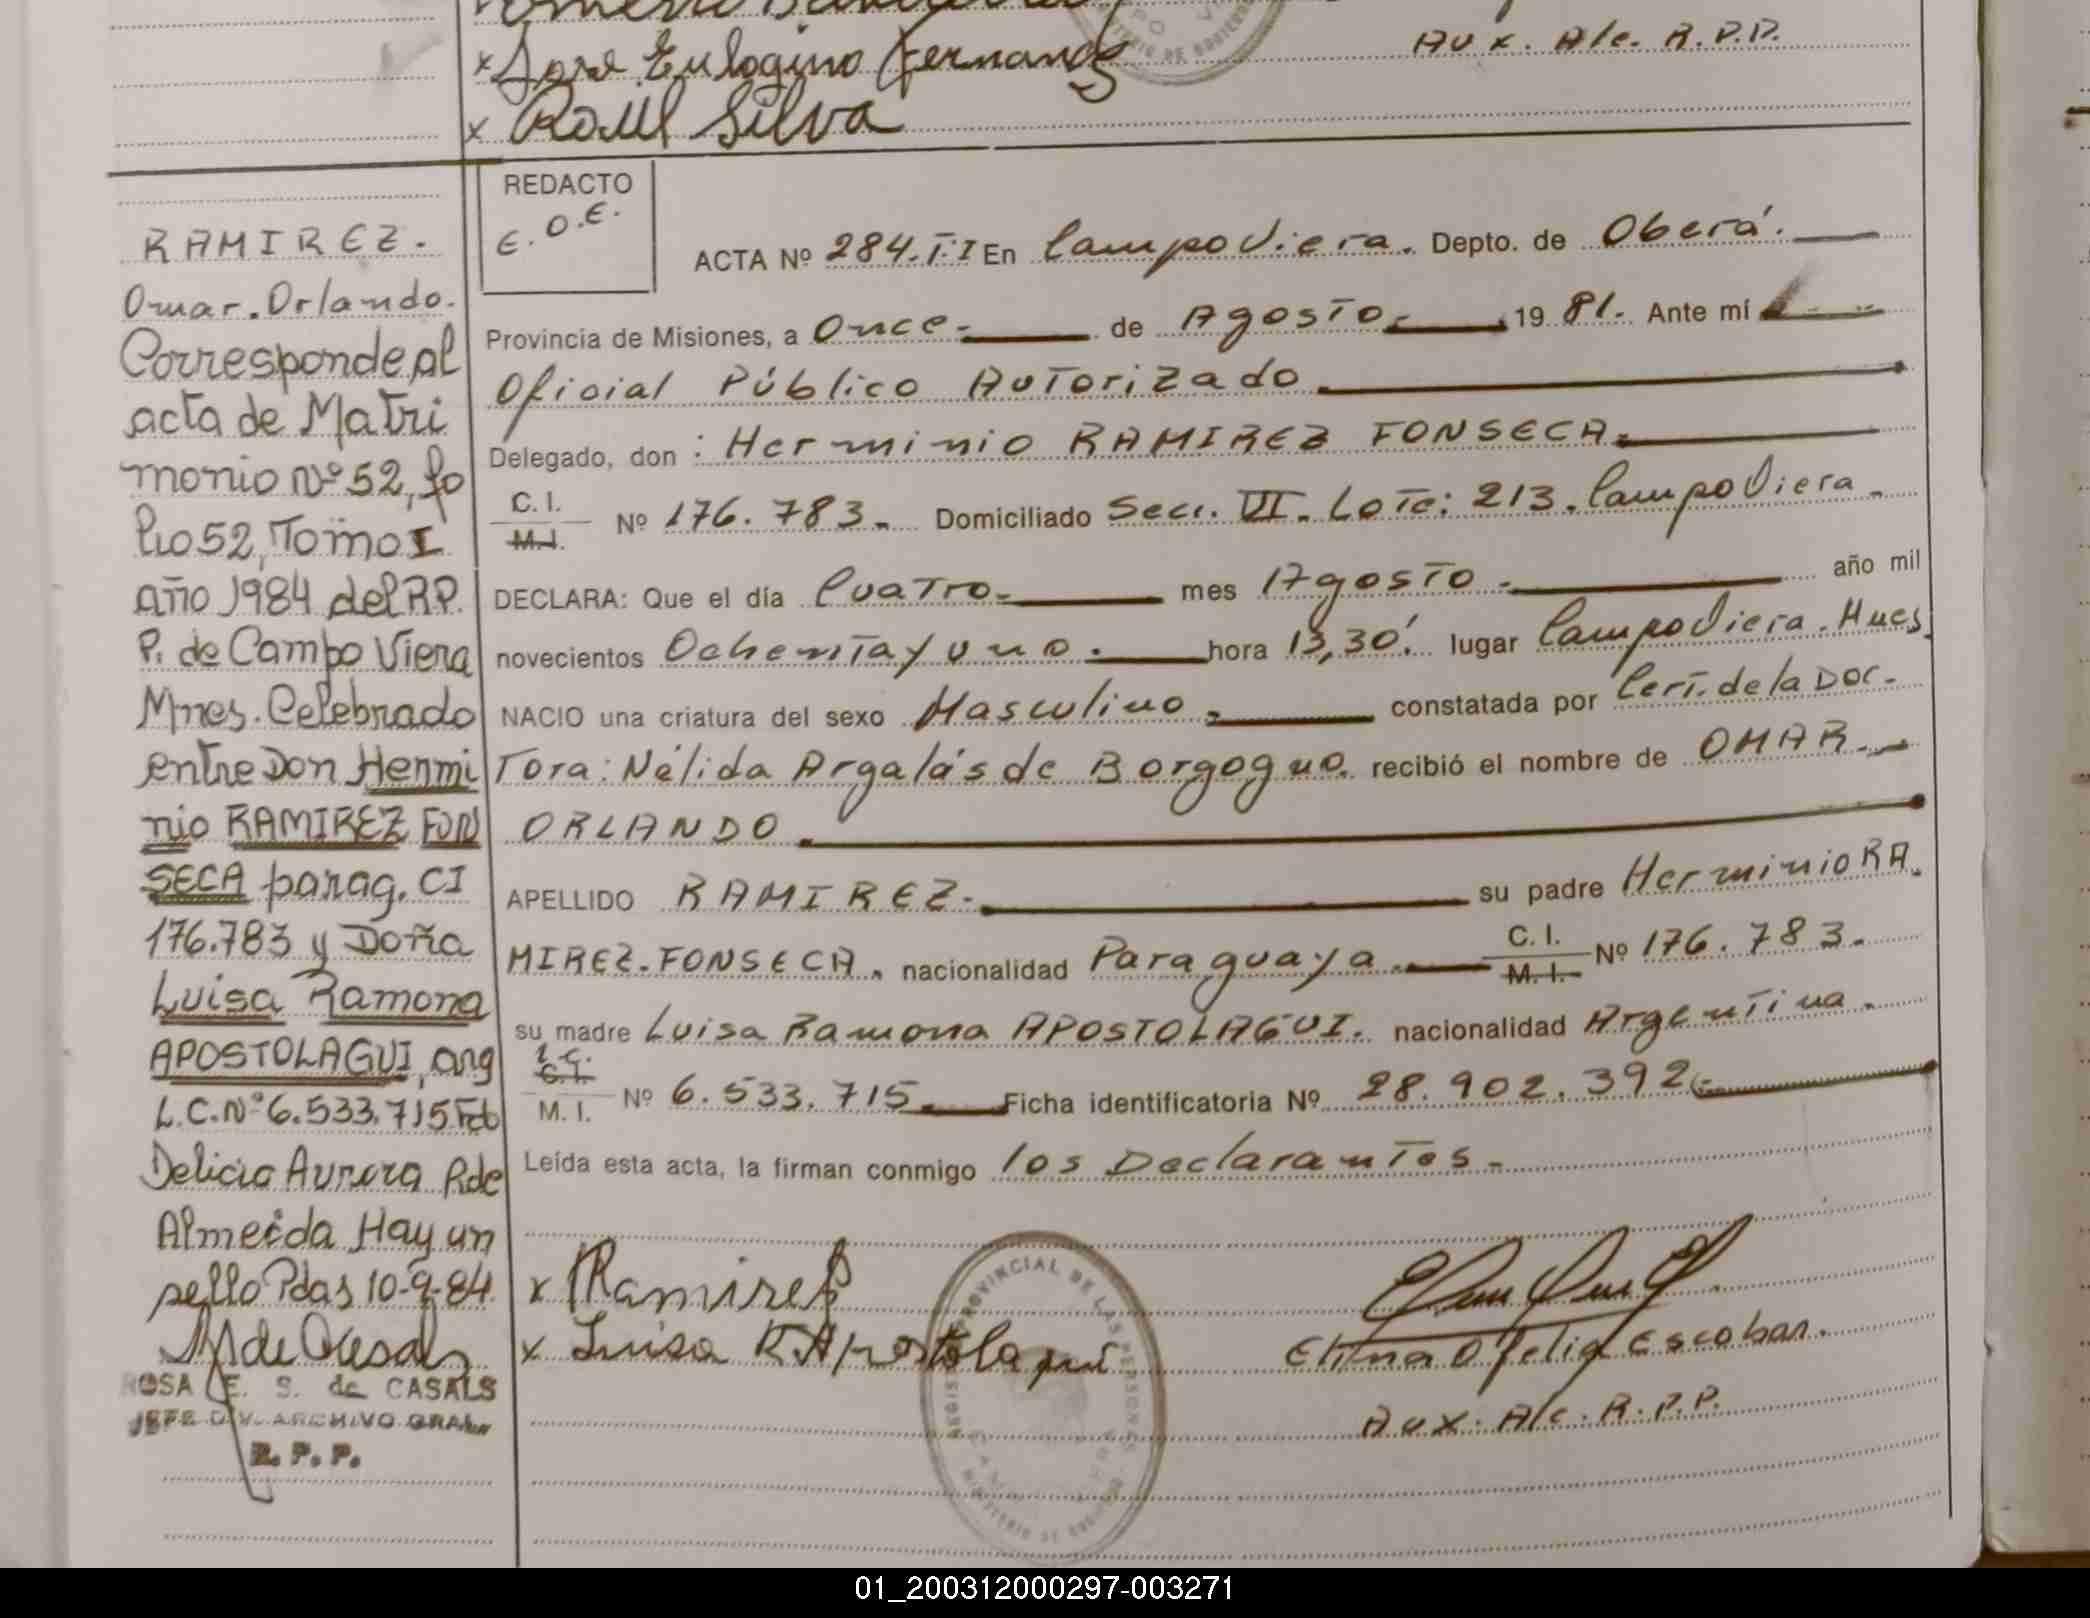 x José Eulogino Fernandez
Aux. A/c. R.P.P.
x Raúl Silva
RAMIREZ.
Omar. Orlando.
Corresponde al
acta de Matri
monio Nº 52, fo
lio 52, Tomo I
año 1984 del R.P.
P. de Campo Viera
Mnes. Celebrado
entre Don Hermi
nio RAMIREZ FON
SECA parag. CI
176.783 y Doña
Luisa Ramona
APOSTOLAGUI, arg
L.C. Nº 6.533.715 Fdo
Delicia Aurora R de
Almeida Hay un
sello Pdas 10-9-84
ROSA E. S. de CASALS
JEFE DIV. ARCHIVO GRAL.
R. P. P.
REDACTO
E.O.E.
ACTA Nº 284.T:I En Campo Viera. Depto. de Oberá.
Provincia de Misiones, a Once.- de Agosto.- 19 81. Ante mí
Oficial Público Autorizado
Delegado, don : Herminio RAMIREZ FONSECA.
C. I.
M. I. Nº 176.783.- Domiciliado Secc. VI. Lote: 213. Campo Viera.-
DECLARA: Que el día Cuatro.- mes Agosto.- año mil
novecientos Ochenta y uno.- hora 13,30'. lugar Campo Viera. Mnes.
NACIO una criatura del sexo Masculino.- constatada por Cert. de la Doc-
tora: Nélida Argalás de Borgogno. recibió el nombre de OMAR.-
ORLANDO.
APELLIDO RAMIREZ.- su padre Herminio RA.
MIREZ. FONSECA. nacionalidad Paraguaya.- C. I. Nº 176.783.-
M. I.
su madre Luisa Ramona APOSTOLAGUI. nacionalidad Argentina.-
L.C.
C. I.
M. I. Nº 6.533.715.- Ficha identificatoria Nº 28.902.392.-
Leída esta acta, la firman conmigo los Declarantes.-
x Ramirez
x Luisa R Apostolagui
REGISTRO PROVINCIAL DE LAS PERSONAS
MINISTERIO DE GOBIERNO
Elina Ofelia Escobar.
Aux. A/c. R.P.P.
01_200312000297-003271